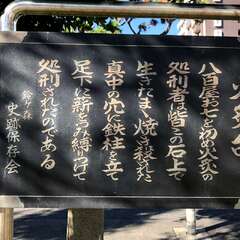 火炙台
八百屋お七を初め火炙の
処刑者は皆この石上で
生きたまゝ焼き殺された
真中の穴に鉄柱を立て
足下に薪を積み縛りつけて
処刑されたのである
鈴ヶ森
史跡保存会